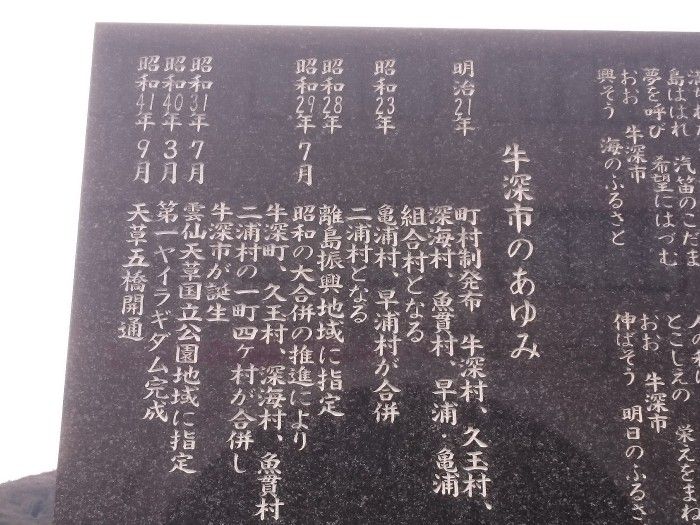 島はは れ 汽笛のこだま
夢を呼び 希望にはづむ
おお 牛深市
興そう 海のふるさと
とこしえの 栄えをまね
おお 牛深市
伸ばそう 明日のふるさ
牛深市のあゆみ
明治21年 町村制発布 牛深村、久玉村、
深海村、魚貫村、早浦・亀浦
組合村となる
昭和23年 亀浦村、早浦村が合併
二浦村となる
昭和28年 離島振興地域に指定
昭和29年 7月 昭和の大合併の推進により
牛深町、久玉村、深海村、魚貫村
二浦村の一町四ヶ村が合併し
牛深市が誕生
昭和31年 7月 雲仙天草国立公園地域に指定
昭和40年 3月 第一ヤイラギダム完成
昭和41年 9月 天草五橋開通